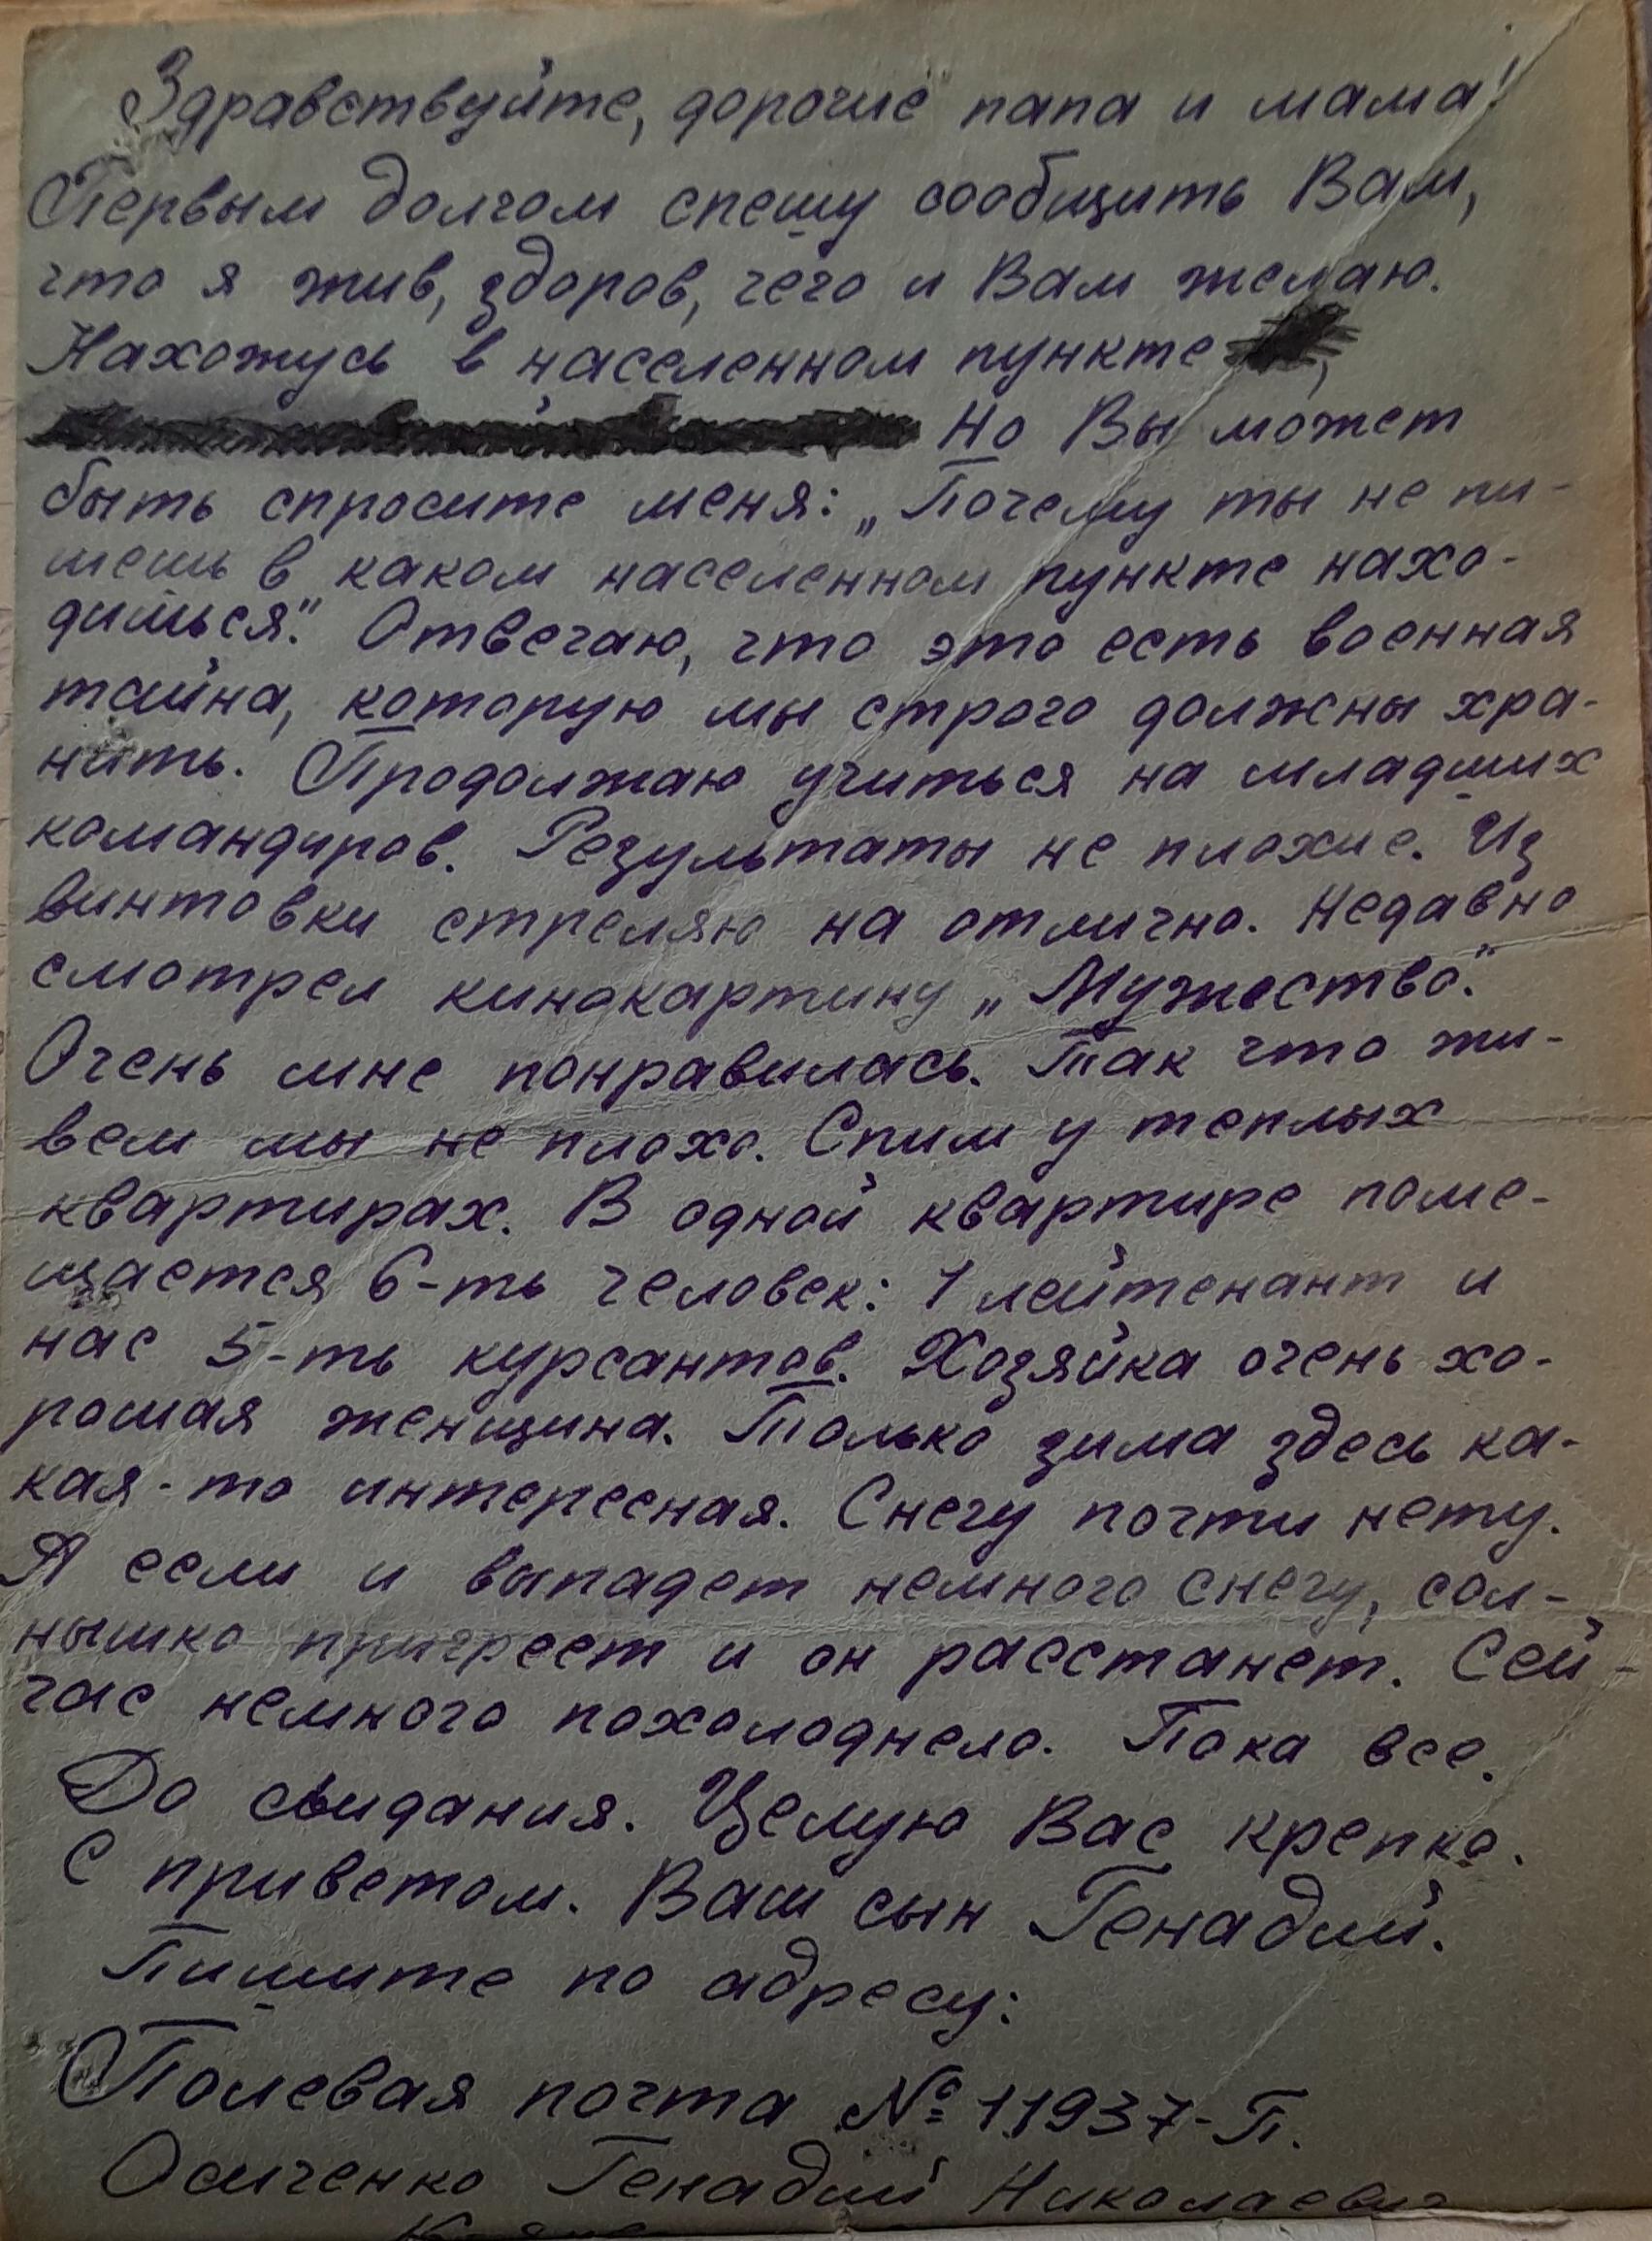 Здравствуйте, дорогие папа и мама!
Первым долгом спешу сообщить Вам,
что я жив, здоров, чего и Вам желаю.
Нахожусь в населенном пункте
Но Вы может
быть спросите меня: „Почему ты не пи-
шешь в каком населенном пункте нахо-
дишься“. Отвечаю, что это есть военная
тайна, которую мы строго должны хра-
нить. Продолжаю учиться на младших
командиров. Результаты не плохие. Из
винтовки стреляю на отлично. Недавно
смотрел кинокартину „Мужество“.
Очень мне понравилась. Так что жи-
вем мы не плохо. Спим у теплых
квартирах. В одной квартире поме-
щается 6-ть человек: 1 лейтенант и
нас 5-ть курсантов. Хозяйка очень хо-
рошая женщина. Только зима здесь ка-
кая-то интересная. Снегу почти нету.
А если и выпадет немного снегу, сол-
нышко пригреет и он расстанет. Сей-
час немного похолоднело. Пока все.
До свидания. Целую Вас крепко.
С приветом. Ваш сын Генадий.
Пишите по адресу:
Полевая почта № 11937-П.
Генадий Николаевич